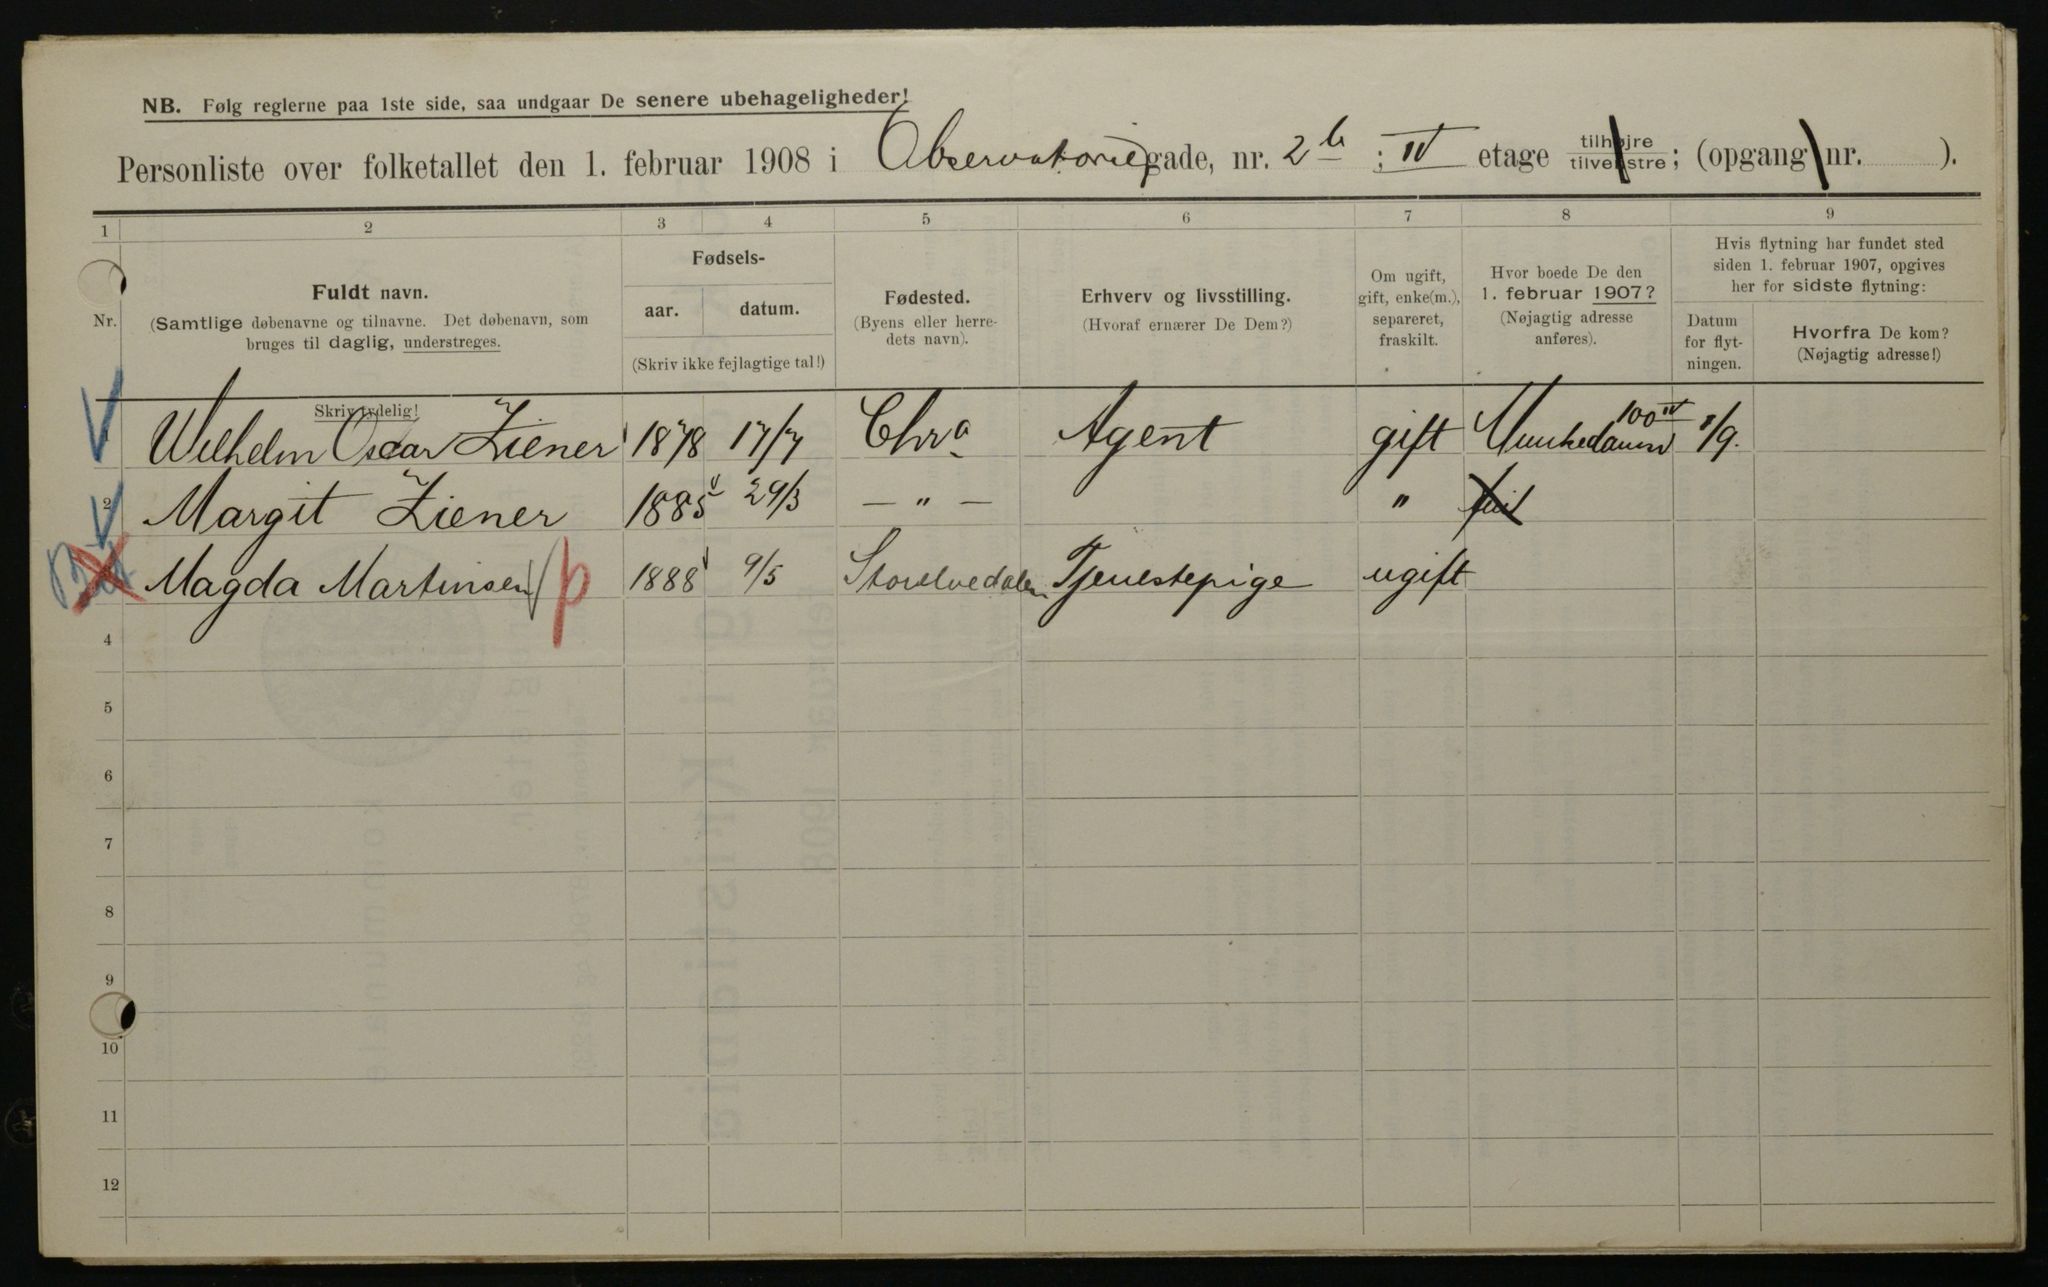 NB. Følg reglerne paa 1ste side, saa undgaar De senere ubehageligheder!
Personliste over folketallet den 1. februar 1908 i Observatoriegade, nr. 2b ; IV etage tilhøjre tilvenstre; (opgang nr. ).
1 2 3 4 5 6 7 8 9
Nr.
Fuldt navn.
(Samtlige døbenavne og tilnavne. Det døbenavn, som
bruges til daglig, understreges.
Fødsels-
aar. datum.
(Skriv ikke fejlagtige tal!)
Fødested.
(Byens eller herre-
dets navn).
Erhverv og livsstilling.
(Hvoraf ernærer De Dem?)
Om ugift,
gift, enke(m.),
separeret,
fraskilt.
Hvor boede De den
1. februar 1907?
(Nøjagtig adresse
anføres).
Hvis flytning har fundet sted
siden 1. februar 1907, opgives
her for sidste flytning:
Datum
for flyt-
ningen.
Hvorfra De kom?
(Nøjagtig adresse!)
Skriv tydelig!
1 Wilhelm Oscar Ziener 1878 17/7 Chra Agent gift Munkedamsv 100 IV 1/9.
2 Margit Ziener 1885 29/3 — " — "
Magda Martinsen p 1888 9/5 Storelvedalen Tjenestepige ugift
4
5
6
7
8
9
10
11
12